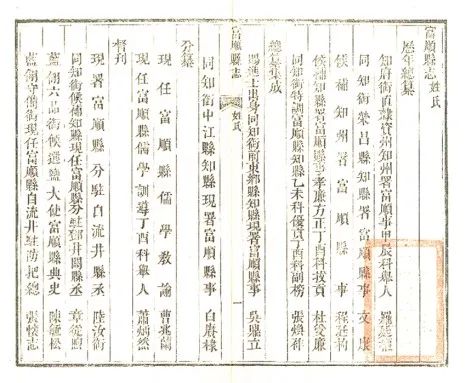 富順縣志 姓氏
歷年總纂
知府銜直隸資州知州署富順事甲辰科舉人 羅廷權
同知銜榮昌縣知縣署富順縣事 文康
候補知州署富順縣事 程
候補知縣署富順縣事孝廉方正丁酉科拔貢 杜受廉
同知銜特調富順縣知縣乙未科優貢丁酉科副榜 張煥祚
總纂集成
賜進士出身同知銜前東鄉縣知縣現署富順縣事 吳鼎立
富順縣志 姓氏 一
同知銜中江縣知縣現署富順縣事 白賡棣
分纂
現任富順縣儒學教諭 曹兆蘭
現任富順縣儒學訓導丁酉科舉人 蕭炳然
督刊
現署富順縣分駐自流井縣丞 陸汝銜
同知銜候補知縣現任富順縣分駐鄧井關縣丞 章從
藍翎六品銜候選鹽大使富順縣典史 陳毓松
藍翎守備銜現任富順縣自流井駐防把總 張懷志